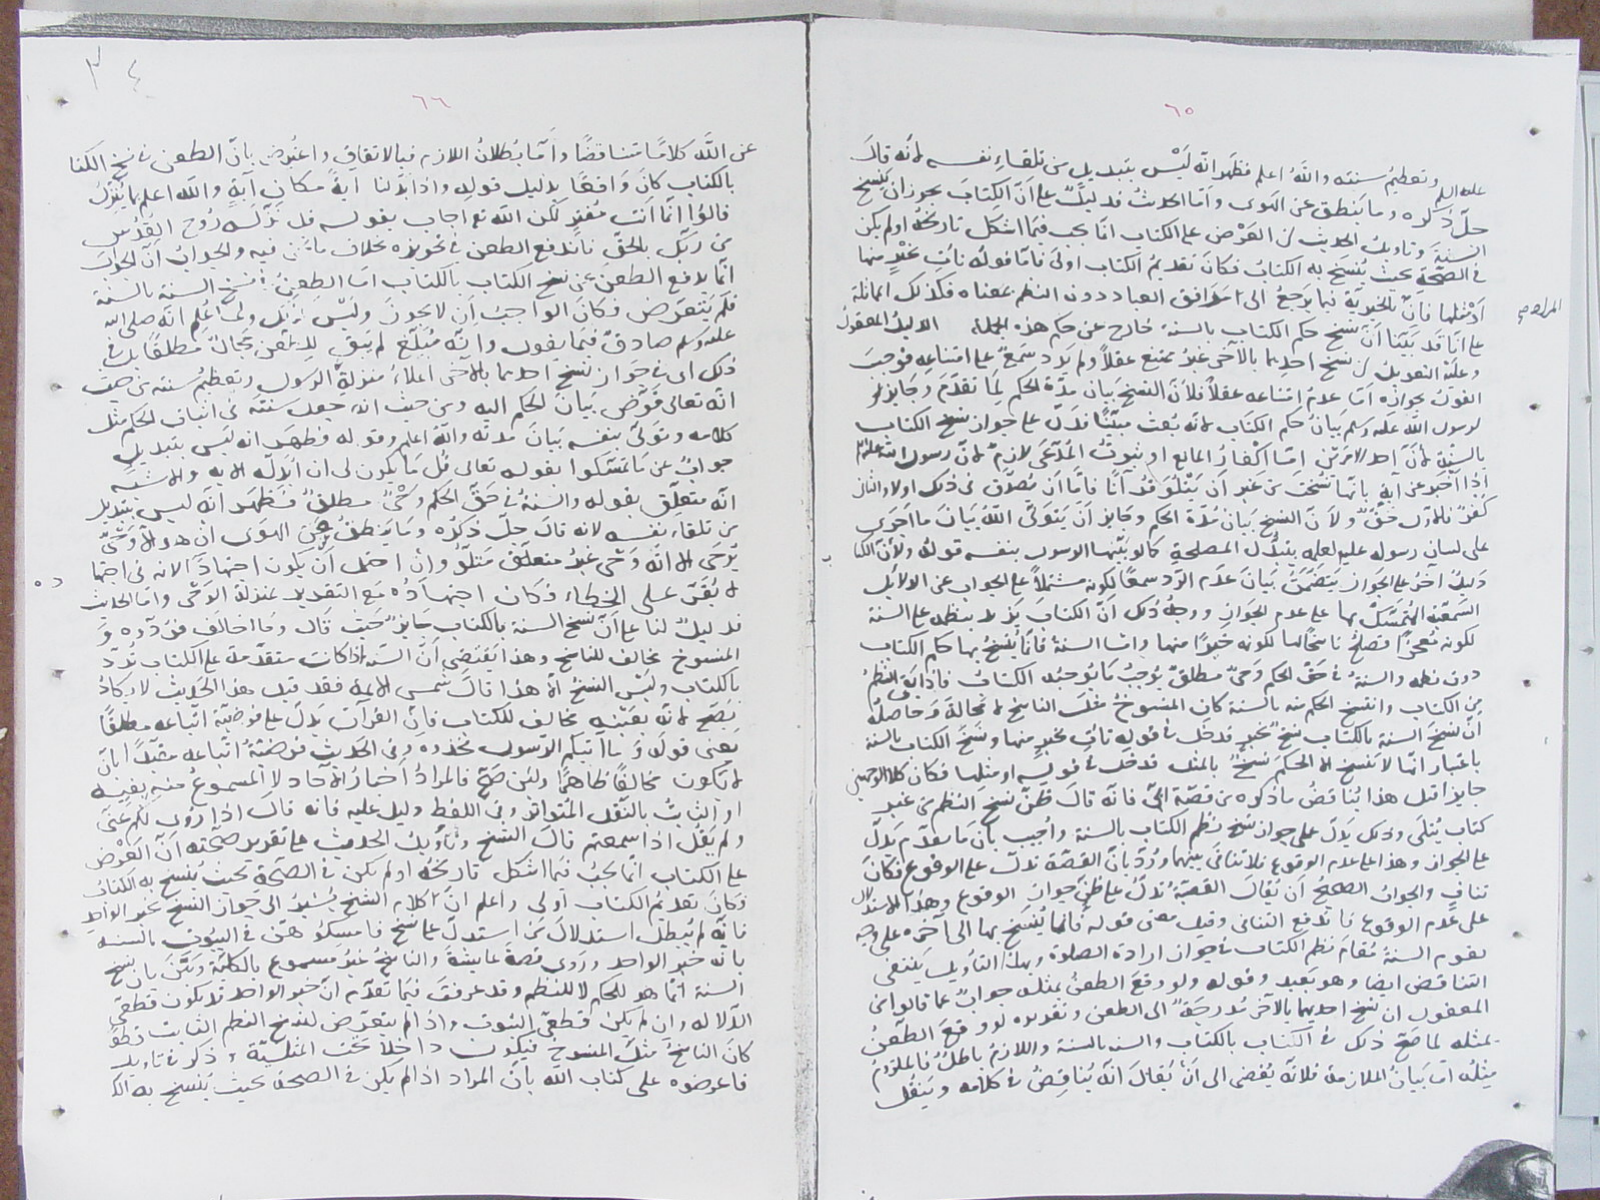 ٦٥
وتعظيمُ سنته واللهُ اعلم فظهرانّه لَيْسَ بتبديلٍ من تلقاءِ نفسه لأنه قالَ
جلّ ذكره وما ينطق عن الهوى وأمّا الحديث فدليلٌ على أنّ الكتابَ يجوزان ينسخ
السنةَ وتاويلُ الحديث أن العَرْض على الكتاب انما يجب فيما اشكل تاريخُهُ اولم يكن
في الصّحّة بحيث يُنْسَخ به الكتابُ فكانَ تقديمُ الكتاب اولى فامّا قولُهُ ناتِ بخَيْرٍ منها
اَوْمثلها فانّ الخيريّة فيما يرجعُ الى مَرافق العباد دون النظم بمعناه فكذلك المماثلة
على انّا قد بَيَّنّا أنّ نسخ حكم الكتاب بالسنة خارج عن حكم هذه الجملة الدليلُ المعقولُ
وعليه التعويلُ أن نسخ احدهما بالآخر غيرُ ممتنع عقلاً ولم يَرِد سَمعٌ على امتناعِهِ فوجبَ
القولُ بجوازه امّا عدمُ امتناعه عقلاً فلأنّ النسخ بيان مدّة الحكم لِمَا تقدّمَ وجايز
لرسول الله عليه وسلم بيانُ حكم الكتاب لأنه بُعث مبيّنًا فدلّ على جواز نسخ الكتاب
بالسنة لأنّ احد الامرين امّا انتفاءُ المانع او ثبوتُ المدّعَى لازمٌ لأنّ رسول الله
اِذا أخبر عن آيةٍ بانها نُسخت من غير أن يَتْلُوَ قُرآنًا فامّا أن يُصَدَّق في ذلك اولا والثاني
كفرٌ فالاول حقٌّ ولأنّ النسخ بيان مُدّة الحكم وجايز أنْ يتولّى اللهُ بيانَ ما اَجْرَى
على لسان رسوله عليه لعلمه بتبدُّل المصلحةِ كالو بيّنها الرسول بنفسه قوله ولأنّ الكتا
دليلٌ آخرُ على الجواز يتضمّنُ بيانَ عدم الرّد سمعًا لكونه مشتملاً على الجواب عن الدلايل
السمعيّة المتمسّك بها على عدم الجواز ووجهُ ذلك أنّ الكتابَ يزيد بنظمه على السنة
لكونه مُعجزًا فصلحُ ناسخًا لها لكونه خيرًا منها وامّا السنة فانّما يُنْسَخُ بها حكم الكتاب
دون نظمه والسنةُ في حقّ الحكم وحىٌ مطلقٌ يُوجبُ مَا يُوجبُه الكتابُ فاذا بَقِيَ النظمُ
مِنَ الكتاب وانتسخ الحكم منه بالسنة كان المنسوخُ مثلَ الناسخ لا محالة وحاصلُه
أنّ نسخَ السنة بالكتاب نسخٌ بخيرٍ فدخل في قوله ناتِ بخيرٍ منها ونسخَ الكتاب بالسنة
باعتبار انّها لا تنسخ الا الحكمَ نسخٌ بالمثل فدخل في قوله او مثلِها فكان كلا الوجهين
جايزا قيل هذا يُناقضُ ما ذكره من قصّة اُبَيٍّ فانّه قالَ فظنَّ نسخ النظم من غير
كتاب يُتلَى وذلك يَدُلّ على جواز نسخ نظم الكتاب بالسنة واُجيب بأن ما تقدّم يَدلّ
على الجواز وهذا على عدم الوقوع فلا تنافيَ بينهما ورُدَّ بأنّ القصّة تدلّ على الوقوع فكانَ
تنافٍ والجوابُ الصحيحُ أن يُقالَ القصّةُ تدلُّ على ظنِّ جوازِ الوقوع وهذا الاستدلال
على عدم الوقوع فاندفع التنافي وقيل معنى قوله فانما يُنسَخ بها الى آخره على وجه
يقوم السنةُ مُقامَ نظم الكتاب في جواز ارادة الصلوة وبهذا التأويل ينتفي
التناقض ايضا وهو بَعيد وقوله ولو وقع الطعنُ بمثله جوابٌ عما قالوا في
المعقول ان نسخ احدهما بالآخر مَدرجَةٌ الى الطعن وتقريره لو وقع الطّعنُ
بمثله لما صَحّ ذلك في الكتاب بالكتاب والسنة بالسنة واللازمُ باطلٌ فالملزومُ
مثلُه امّا بيانُ الملازمة فلأنّه يُفضي الى أنْ يُقالَ انّه يُناقِضُ في كلامه ويَنقُل
٦٦
عن اللّٰه كلامًا متناقضًا وأمّا بُطلانُ اللازم فبالاتفاقِ واعتُرض بانّ الطعن في نسخ الكتا
بالكتاب كانَ وَاقعًا بدليل قوله واذا بدّلنا آيةً مكانَ آيةٍ واللّٰه اعلم بما يُنَزِّلُ
قالوُا انّما أنْتَ مُفْتَرٍ لكن اللّٰه تع اجابَ بقوله قل نزّله رُوحُ القُدُس
من ربّك بالحقّ فاندفع الطعن في تجويزه بخلاف ما نحن فيه والجوابُ اَنّ الجوابَ
انّما يدفع الطعن عن نسخ الكتاب بالكتاب امّا الطعنُ في نسخ السنة بالسنة
فلَم يتعرّض فكانَ الواجبُ أن لا يجوزَ وليْسَ كذلك ولمّا عُلم انّه صلى الله
عليه وسلم صادقٌ فيما يقول وانّه مُبلّغٌ لم يَبقَ للطعن مجالٌ مطلقًا بل في
ذلك اى في جواز نسخ احدهما بالآخر اعلاءُ منزلةِ الرسول وتعظيمُ سنته من حيث
انّه تعالى فوّض بَيانَ الحكم اليه ومن حيث انه جعل سنّتَه في اثباتِ الحكم مثلَ
كلامه وتولّى بنفسه بيانَ مدّته واللّٰهُ اعلم وقوله فظهر انه ليس بتبديل
جوابٌ عن مَا تمسّكوا بقوله تعالى قُلْ مَا يكون لى ان اُبَدّله الآية والاشبه
انّه متعلّق بقوله والسنةُ في حقّ الحكم وَحْىٌ مطلقٌ فظهر انّه ليس بتبديل
من تلقاء نفسه لانه قالَ جلّ ذكرُه ومَا ينطقُ عن الهوَى ان هو الّا وَحْىٌ
يوحَى الا انّه وَحْىٌ غيرُ متعلّق مَتلُوّ وان احتمل أنْ يكون اجتهادًا الا انه في اجتها
لا يُقَرّ على الخطاء فكان اجتهادُه مع التقدير بمنزلة الوَحْى وامّا الحديث
فدليلٌ لنا على أنّ نسخ السنة بالكتاب جَايزٌ حيث قالَ وما خالفَ فرُدّوه وَ
المنسوخُ مخالف للناسخ وهذا يقتضي انّ السنّة اذا كانت متقدّمة على الكتاب تُردّ
بالكتاب ولَيْسَ النسخُ الّا هذا قالَ شمسُ الايمة فقد قيل هذا الحديث لا يكادُ
يصحّ لانّه بعَيْنه مخالف للكتاب فانّ القرآن يَدُلّ على فرضيّة اتّباعه مطلقًا
يعني قوله وما آتيكم الرّسول فخذوه وفي الحديث فرضيّةُ اتباعه مقيّدًا بأنْ
لا يكون مخالفًا ظاهرًا ولئن صَحّ فالمرادُ اخبارُ الآحاد لا المسموعُ منه بعَينه
او الثابتُ بالنّقل المُتواتر وفي اللفظ دليل عليه فانه قالَ اذا رُوى لكم عَنّى
ولم يقُل اذا سمعتم قالَ الشيخ وتأويل الحديث على تقدير صحّته أنّ العَرْض
على الكتاب انّما يجبُ فيما اشكل تاريخُه اولم يكن في الصّحّة بحيث يُنسخ به الكتابُ
فكانَ تقديمُ الكتاب اولى واعلم انّ كلام الشيخ يُشيرُ الى جواز النسخ بخبر الواحد
فانّه لم يُبطل استدلالَ مَن استدلّ على نسخ فامسكوهنّ في البيوت بالسنة
بانّه خبر الواحد ورَوى قصةَ عايشةَ والناسخُ غيرُ مسموع بالكليّة وبيّنَ بان نسخ
السنة انّما هو للحكم لا للنظم وقد عرفتَ فيما تقدّم انّ خبر الواحد قد يكون قطعيَّ
الدّلالة وان لم يكن قطعيّ الثبوت واذا لم يتعرّض لنسخ النظم الثابت قطعًا
كانَ الناسخُ مثلَ المنسوخ فيكون داخلاً تحت المثليّة وذكر في تاويل
فاعرضوه على كتاب اللّٰه بانّ المراد اذا لم يكن في الصحة بحيث يُنسخ به الك